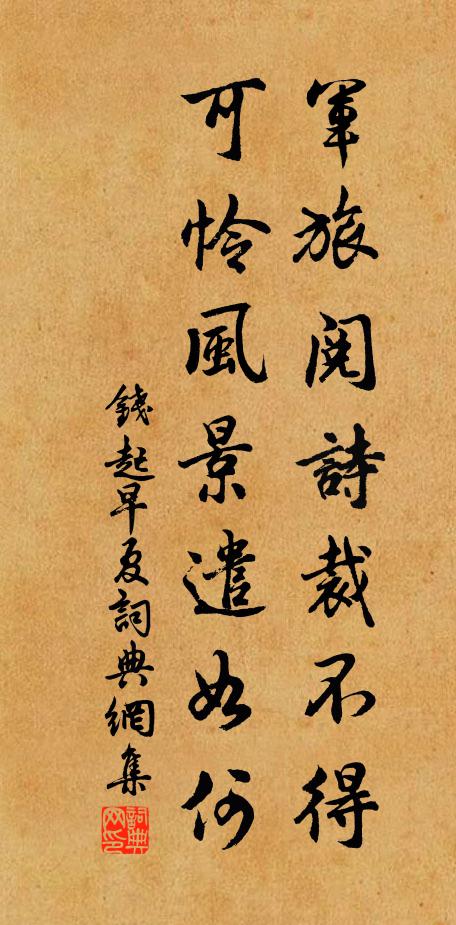 軍旅閱詩裁不得
可怜風景遣如何
錢起早夏詞典網集
詞典网印